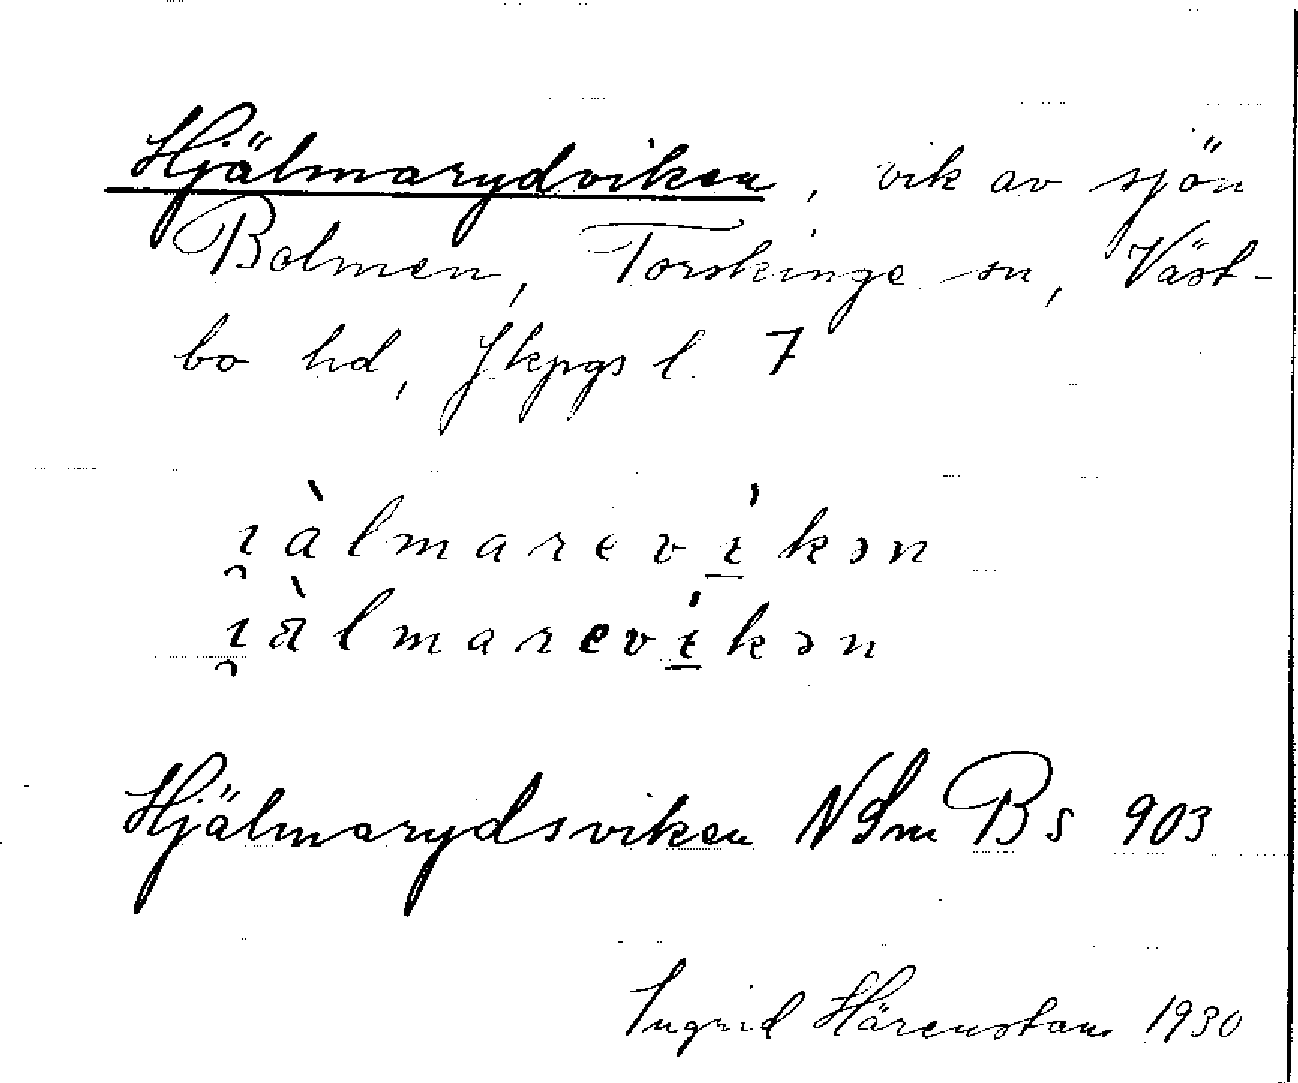 Hjälmarydviken, vik av sjön
Bolmen, Torskinge sn, Väst-
bo hd, Jkpgs l. 7
ı̯àlmareví̠kən
ı̯àlmareví̠kən
Hjälmarydsviken NSm Bs 903
Ingrid Härenstam 1930